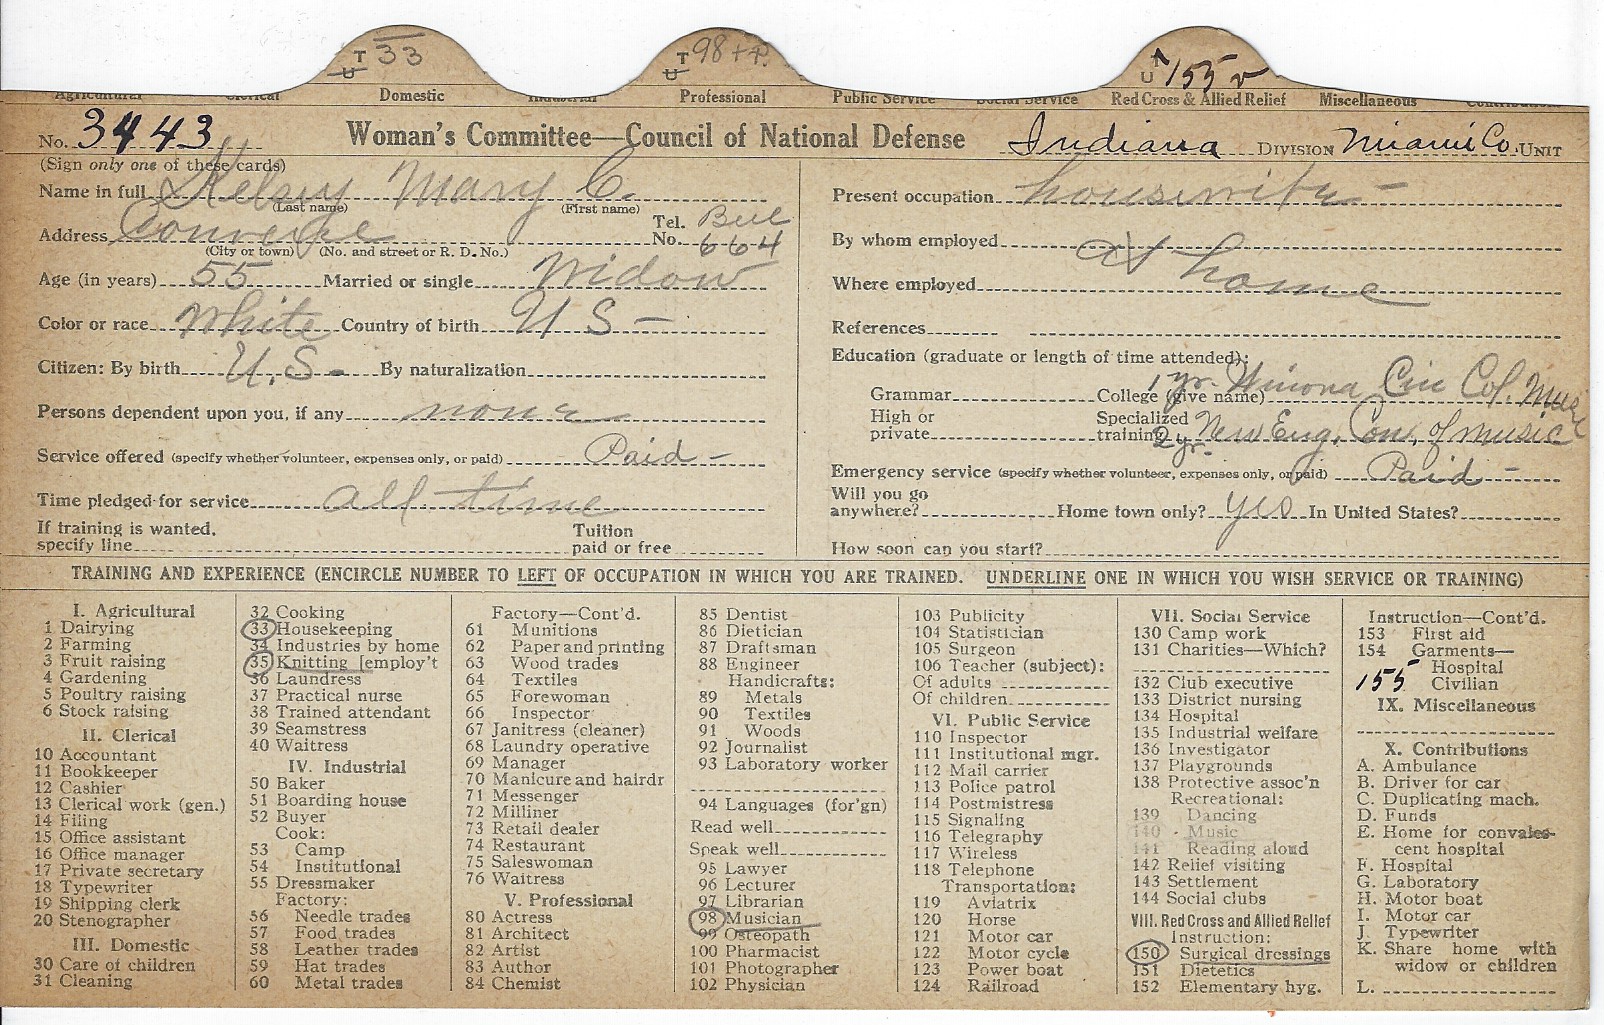 T U 33
T U 98 + P.
T U 155 v
Domestic Professional Public Service Social Service Red Cross & Allied Relief Miscellaneous
No. 3443 Woman's Committee—Council of National Defense Indiana DIVISION Miami Co. UNIT
(Sign only one of these cards)
Name in full Kelsey Mary C.
(Last name) (First name)
Address Converse Tel. No. Bell 664
(City or town) (No. and street or R. D. No.)
Age (in years) 55 Married or single Widow
Color or race White Country of birth U S -
Citizen: By birth U.S. By naturalization
Persons dependent upon you, if any none
Service offered (specify whether volunteer, expenses only, or paid) Paid -
Time pledged for service all time
If training is wanted, specify line Tuition paid or free
Present occupation housewife -
By whom employed at home
Where employed
References
Education (graduate or length of time attended):
Grammar College (give name) 1 yr. Winona Cin Col. Music
High or private Specialized training 2 yr. New Eng. Con. of music
Emergency service (specify whether volunteer, expenses only, or paid) Paid -
Will you go anywhere? Home town only? yes In United States?
How soon can you start?
TRAINING AND EXPERIENCE (ENCIRCLE NUMBER TO LEFT OF OCCUPATION IN WHICH YOU ARE TRAINED. UNDERLINE ONE IN WHICH YOU WISH SERVICE OR TRAINING)
I. Agricultural
1 Dairying
2 Farming
3 Fruit raising
4 Gardening
5 Poultry raising
6 Stock raising
II. Clerical
10 Accountant
11 Bookkeeper
12 Cashier
13 Clerical work (gen.)
14 Filing
15 Office assistant
16 Office manager
17 Private secretary
18 Typewriter
19 Shipping clerk
20 Stenographer
III. Domestic
30 Care of children
31 Cleaning
32 Cooking
33 Housekeeping
34 Industries by home
35 Knitting [employ't
36 Laundress
37 Practical nurse
38 Trained attendant
39 Seamstress
40 Waitress
IV. Industrial
50 Baker
51 Boarding house
52 Buyer
Cook:
53 Camp
54 Institutional
55 Dressmaker
Factory:
56 Needle trades
57 Food trades
58 Leather trades
59 Hat trades
60 Metal trades
Factory—Cont'd.
61 Munitions
62 Paper and printing
63 Wood trades
64 Textiles
65 Forewoman
66 Inspector
67 Janitress (cleaner)
68 Laundry operative
69 Manager
70 Manicure and hairdr
71 Messenger
72 Milliner
73 Retail dealer
74 Restaurant
75 Saleswoman
76 Waitress
V. Professional
80 Actress
81 Architect
82 Artist
83 Author
84 Chemist
85 Dentist
86 Dietician
87 Draftsman
88 Engineer
Handicrafts:
89 Metals
90 Textiles
91 Woods
92 Journalist
93 Laboratory worker
94 Languages (for'gn)
Read well
Speak well
95 Lawyer
96 Lecturer
97 Librarian
98 Musician
99 Osteopath
100 Pharmacist
101 Photographer
102 Physician
103 Publicity
104 Statistician
105 Surgeon
106 Teacher (subject):
Of adults
Of children
VI. Public Service
110 Inspector
111 Institutional mgr.
112 Mail carrier
113 Police patrol
114 Postmistress
115 Signaling
116 Telegraphy
117 Wireless
118 Telephone
Transportation:
119 Aviatrix
120 Horse
121 Motor car
122 Motor cycle
123 Power boat
124 Railroad
VII. Social Service
130 Camp work
131 Charities—Which?
132 Club executive
133 District nursing
134 Hospital
135 Industrial welfare
136 Investigator
137 Playgrounds
138 Protective assoc'n
Recreational:
139 Dancing
140 Music
141 Reading aloud
142 Relief visiting
143 Settlement
144 Social clubs
VIII. Red Cross and Allied Relief
Instruction:
150 Surgical dressings
151 Dietetics
152 Elementary hyg.
Instruction—Cont'd.
153 First aid
154 Garments—
Hospital
155 Civilian
IX. Miscellaneous
X. Contributions
A. Ambulance
B. Driver for car
C. Duplicating mach.
D. Funds
E. Home for convales-
cent hospital
F. Hospital
G. Laboratory
H. Motor boat
I. Motor car
J. Typewriter
K. Share home with
widow or children
L.